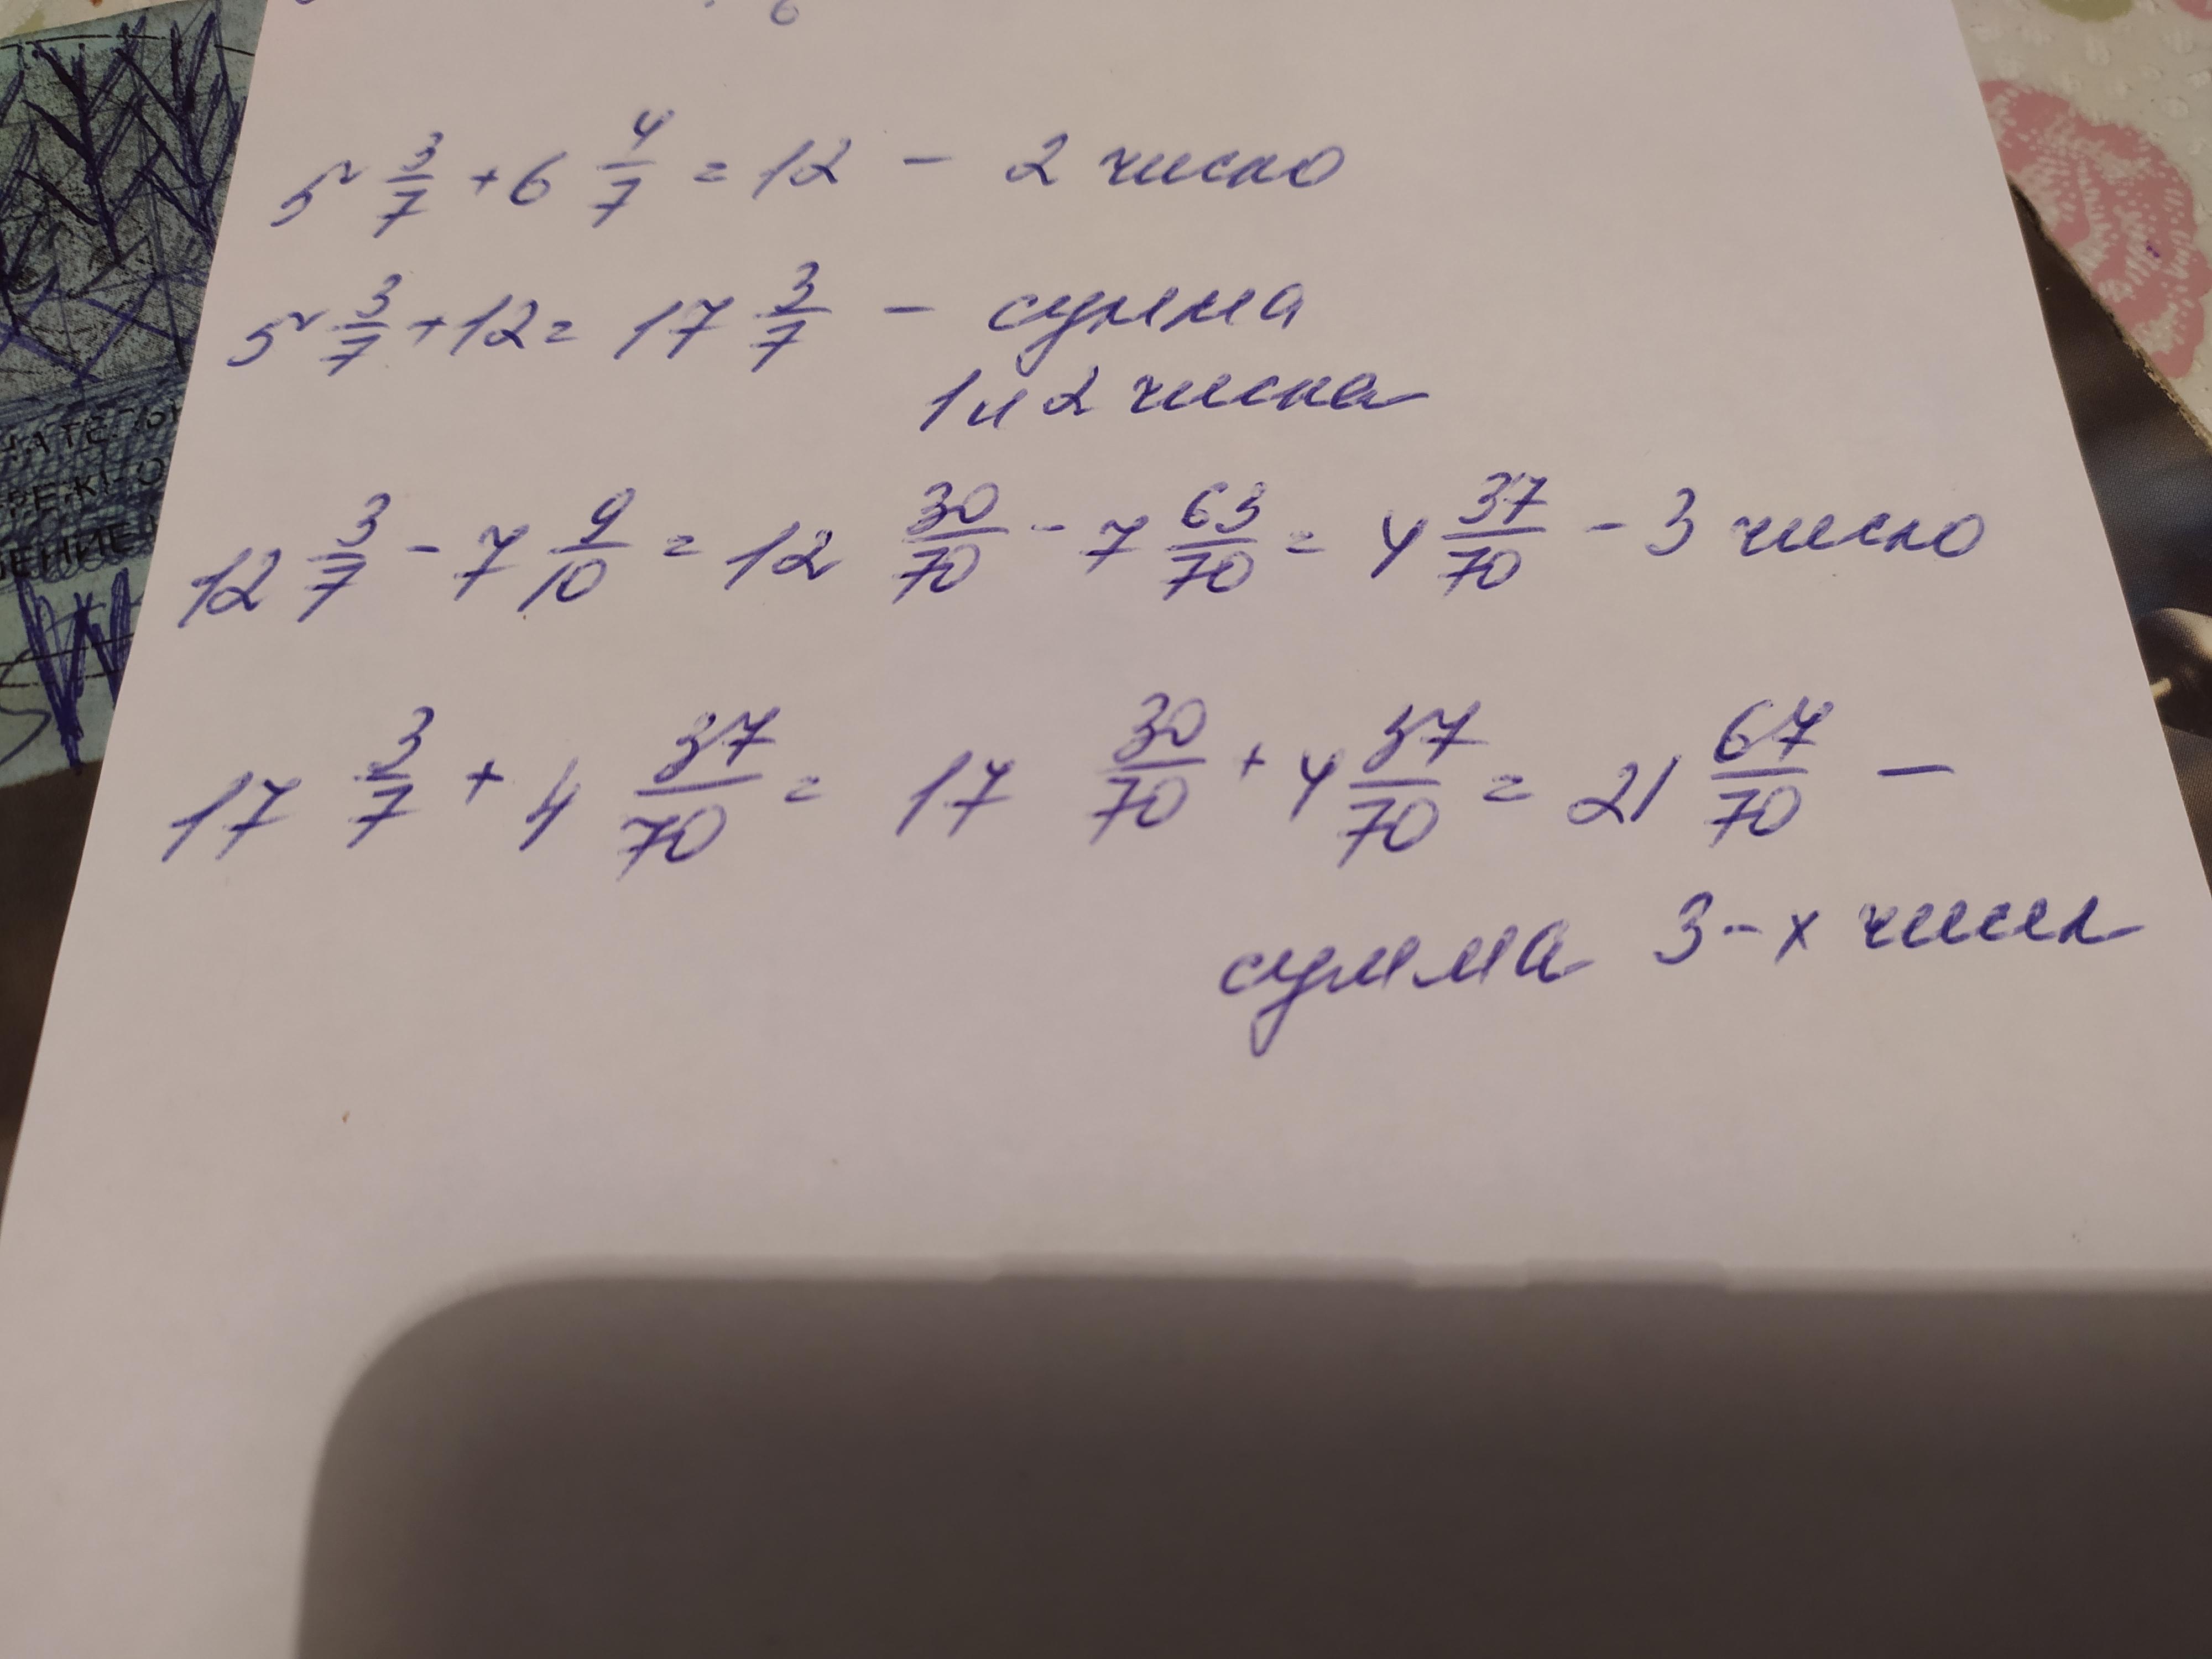 5 3/7 + 6 4/7 = 12 - 2 число
5 3/7 + 12 = 17 3/7 - сумма
1 и 2 числа
12 3/7 - 7 9/10 = 12 30/70 - 7 63/70 = 4 37/70 - 3 число
17 3/7 + 4 37/70 = 17 30/70 + 4 37/70 = 21 67/70 -
сумма 3-х чисел